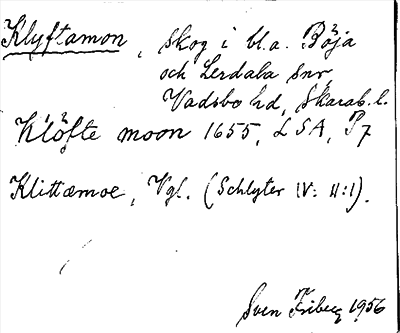 Klyftamon, skog i bl.a. Böja
och Lerdala snr,
Vadsbo hd, Skarab. l.
Klöfte moon 1655, LSA, P7
Klittæmoe, Vgl. (Schlyter IV: 11:1).
Sven Friberg 1956